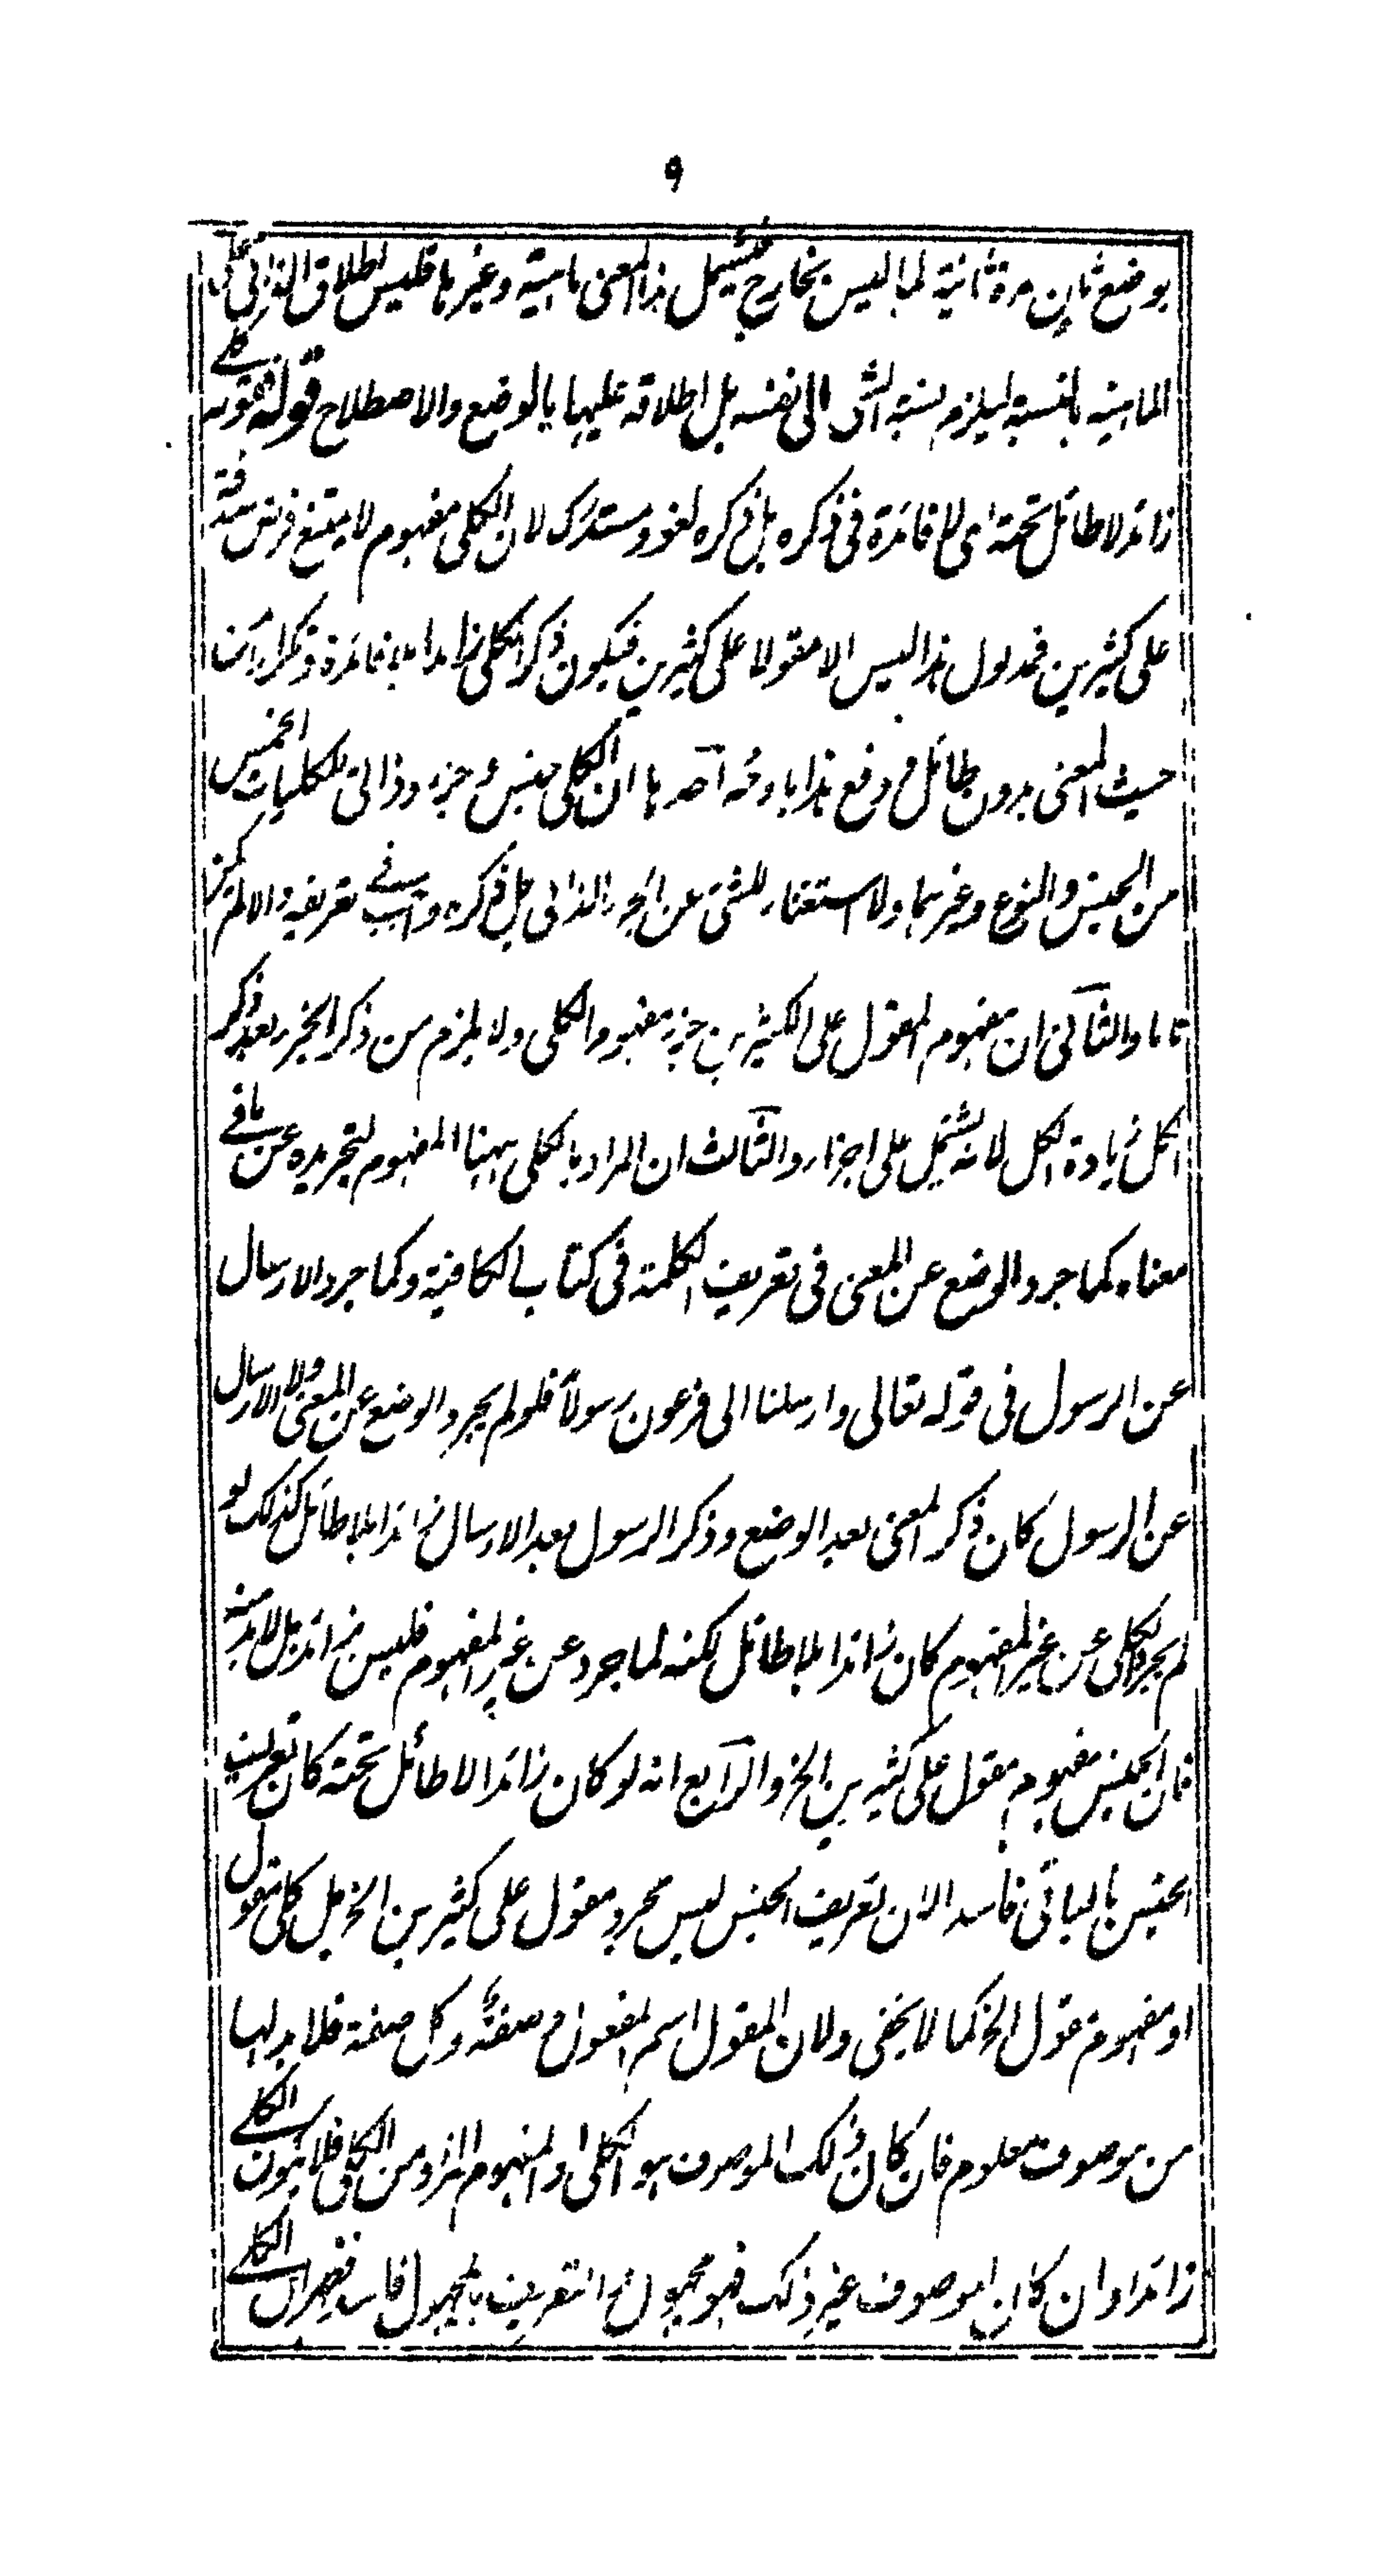 ۹
بوضع ثان مرة ثانية لما ليس بخارج فيشمل هذا المعنى ماهية وغيرها فليس اطلاق الذاتى على
الماهية بالنسبة ليلزم نسبة الشئ الى نفسه بل اطلاقه عليها بالوضع والاصطلاح قوله فهو كلے
زائد لا طائل تحته اى لا فائدة فى ذكره بل ذكره لغو ومستدرك لان الكلى مفهوم لا يمتنع فرض صدقه
على كثيرين فمدلول هذا ليس الا مقولا على كثيرين فيكون ذكر الكلى زائدا بلا فائدة وتكرارا من
حيث المعنى بدون طائل ودفع هذا باوجه احدها ان الكلى جنس وجزء وذاتى للكليات الخمس
من الجنس والنوع وغيرهما ولا استغناء للشئ عن الجزء الذاتى بل ذكره واجب فے تعريفه والا لم يكن
تاما والثانى ان مفهوم المقول على الكثيرين جزء مفهوم الكلى ولا يلزم من ذكر الجزء بعد ذكر
الكل زيادة الكل لانه يشتمل على اجزاء والثالث ان المراد بالكلى ههنا المفهوم لتجريده عن باقے
معناه كما جرد الوضع عن المعنى فى تعريف الكلمة فى كتاب الكافية وكما جرد الارسال
عن الرسول فى قوله تعالى وارسلنا الى فرعون رسولا فلو لم يجرد الوضع عن المعنى ولا الارسال
عن الرسول كان ذكر المعنى بعد الوضع وذكر الرسول بعد الارسال زائدا بلا طائل كذلك لو
لم يجرد الكلى عن غير المفهوم كان زائدا بلا طائل لكنه لما جرد عن غير المفهوم فليس بزائد بل لا بد منه
فان الجنس مفهوم مقول على كثيرين الخ والرابع انه لو كان زائدا لا طائل تحته كان تعريف
الجنس بالباقى فاسدا لان تعريف الجنس ليس مجرد مقول على كثيرين الخ بل كلى مقول
او مفهوم مقول الخ كما لا يخفى ولان المقول اسم المفعول صفة وكل صفة فلا بد لها
من موصوف معلوم فان كان ذلك الموصوف هو الكلى او المفهوم المراد من الكلى فلا يكون الكلے
زائدا وان كان الموصوف غير ذلك فهو مجهول التعريف بالمجهول فاسد فظهر ان الكلے